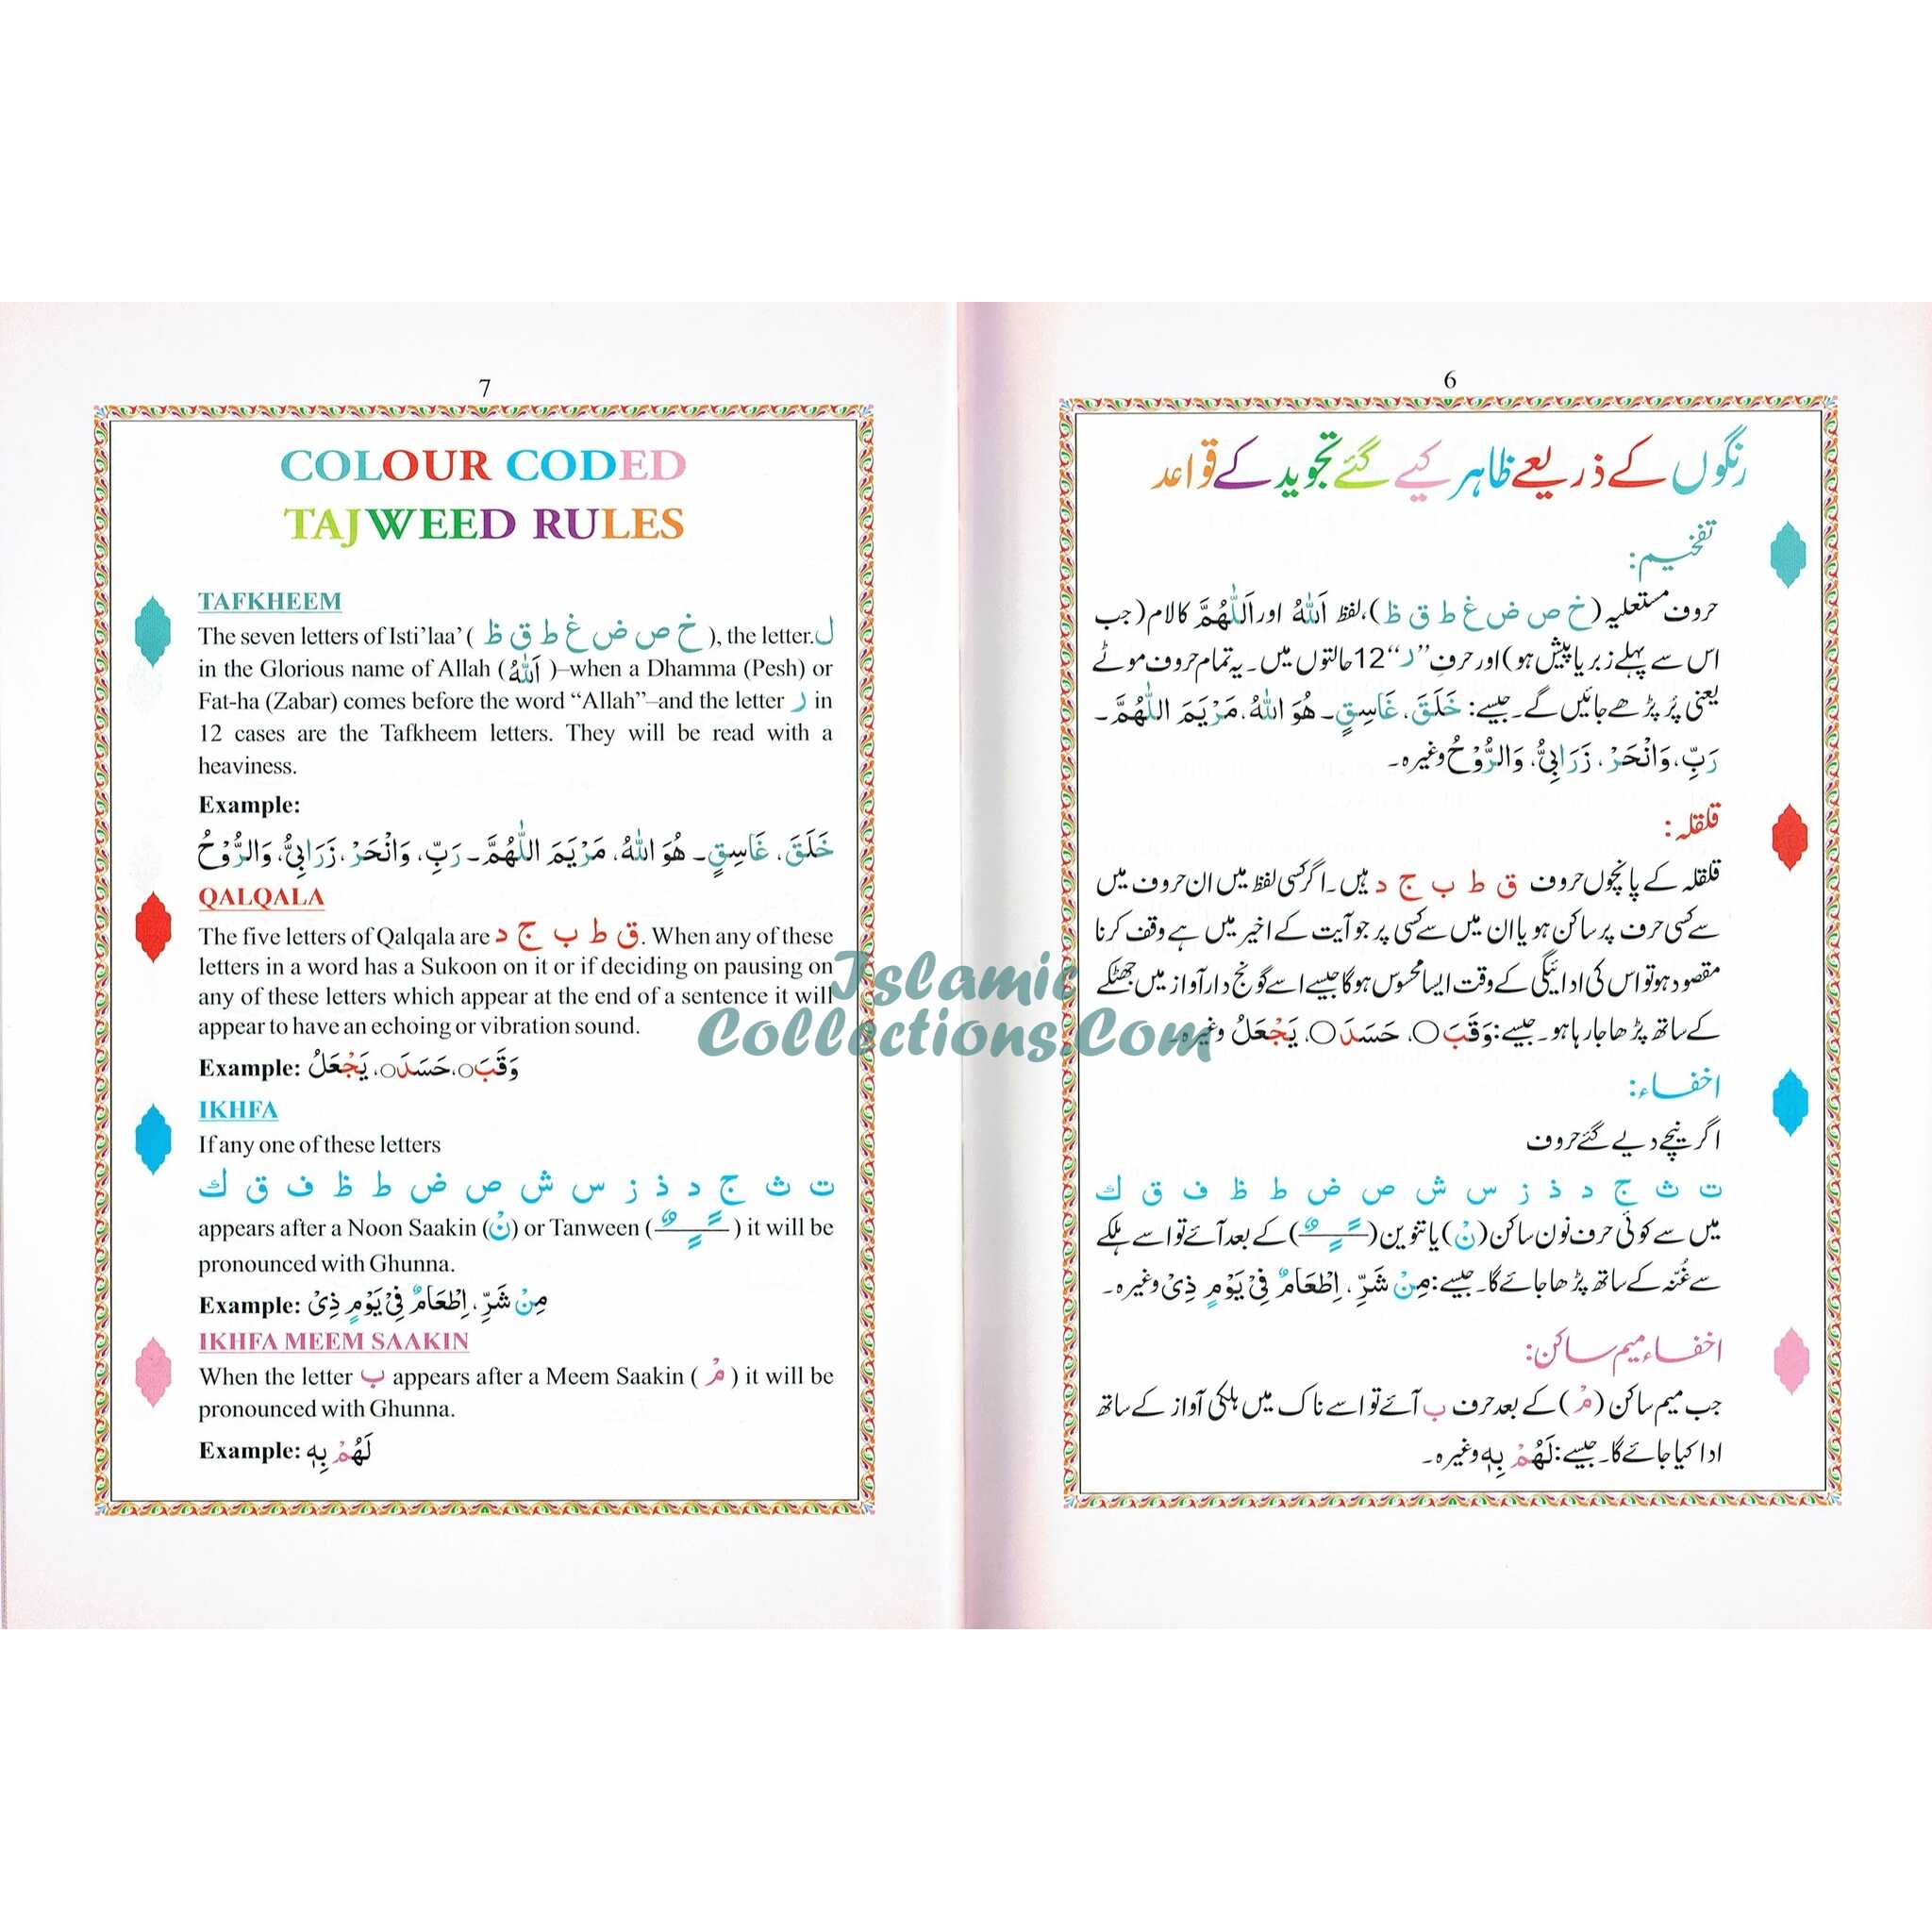 7
COLOUR CODED
TAJWEED RULES
TAFKHEEM
The seven letters of Isti’laa’ ( خ ص ض غ ط ق ظ ), the letter.ل
in the Glorious name of Allah ( اَللّٰهُ )–when a Dhamma (Pesh) or
Fat-ha (Zabar) comes before the word “Allah”–and the letter ر in
12 cases are the Tafkheem letters. They will be read with a
heaviness.
Example:
خَلَقَ، غَاسِقٍ۔ هُوَ اللّٰهُ، مَرْيَمَ اللّٰهُمَّ۔ رَبِّ، وَانْحَرْ، زَرَابِيُّ، وَالرُّوْحُ
QALQALA
The five letters of Qalqala are ق ط ب ج د. When any of these
letters in a word has a Sukoon on it or if deciding on pausing on
any of these letters which appear at the end of a sentence it will
appear to have an echoing or vibration sound.
Example: وَقَبَ○، حَسَدَ○، يَجْعَلُ
IKHFA
If any one of these letters
ت ث ج د ذ ز س ش ص ض ط ظ ف ق ك
appears after a Noon Saakin (نْ) or Tanween ( ـًـٍـٌ ) it will be
pronounced with Ghunna.
Example: مِنْ شَرِّ، اِطْعَامٌ فِيْ يَوْمٍ ذِيْ
IKHFA MEEM SAAKIN
When the letter ب appears after a Meem Saakin ( مْ ) it will be
pronounced with Ghunna.
Example: لَهُمْ بِهٖ
6
رنگوں کے ذریعے ظاہر کیے گئے تجوید کے قواعد
تفخیم:
حروف مستعلیہ (خ ص ض غ ط ق ظ)، لفظ اَللّٰهُ اور اَللّٰهُمَّ کا لام (جب
اس سے پہلے زبر یا پیش ہو) اور حرفِ ”ر“ 12 حالتوں میں۔ یہ تمام حروف موٹے
یعنی پُر پڑھے جائیں گے۔ جیسے: خَلَقَ، غَاسِقٍ۔ هُوَ اللّٰهُ، مَرْيَمَ اللّٰهُمَّ۔
رَبِّ، وَانْحَرْ، زَرَابِيُّ، وَالرُّوْحُ وغیرہ۔
قلقلہ:
قلقلہ کے پانچوں حروف ق ط ب ج د ہیں۔ اگر کسی لفظ میں ان حروف میں
سے کسی حرف پر ساکن ہو یا ان میں سے کسی پر جو آیت کے اخیر میں ہے وقف کرنا
مقصود ہو تو اس کی ادائیگی کے وقت ایسا محسوس ہوگا جیسے اسے گونج دار آواز میں جھٹکے
کے ساتھ پڑھا جا رہا ہو۔ جیسے: وَقَبَ○، حَسَدَ○، يَجْعَلُ وغیرہ۔
اخفاء:
اگر نیچے دیے گئے حروف
ت ث ج د ذ ز س ش ص ض ط ظ ف ق ك
میں سے کوئی حرف نون ساکن (نْ) یا تنوین ( ـًـٍـٌ ) کے بعد آئے تو اسے ہلکے
سے غُنّہ کے ساتھ پڑھا جائے گا۔ جیسے: مِنْ شَرِّ، اِطْعَامٌ فِيْ يَوْمٍ ذِيْ وغیرہ۔
اخفاء میم ساکن:
جب میم ساکن (مْ) کے بعد حرف ب آئے تو اسے ناک میں ہلکی آواز کے ساتھ
ادا کیا جائے گا۔ جیسے: لَهُمْ بِهٖ وغیرہ۔
Islamic
Collections.Com